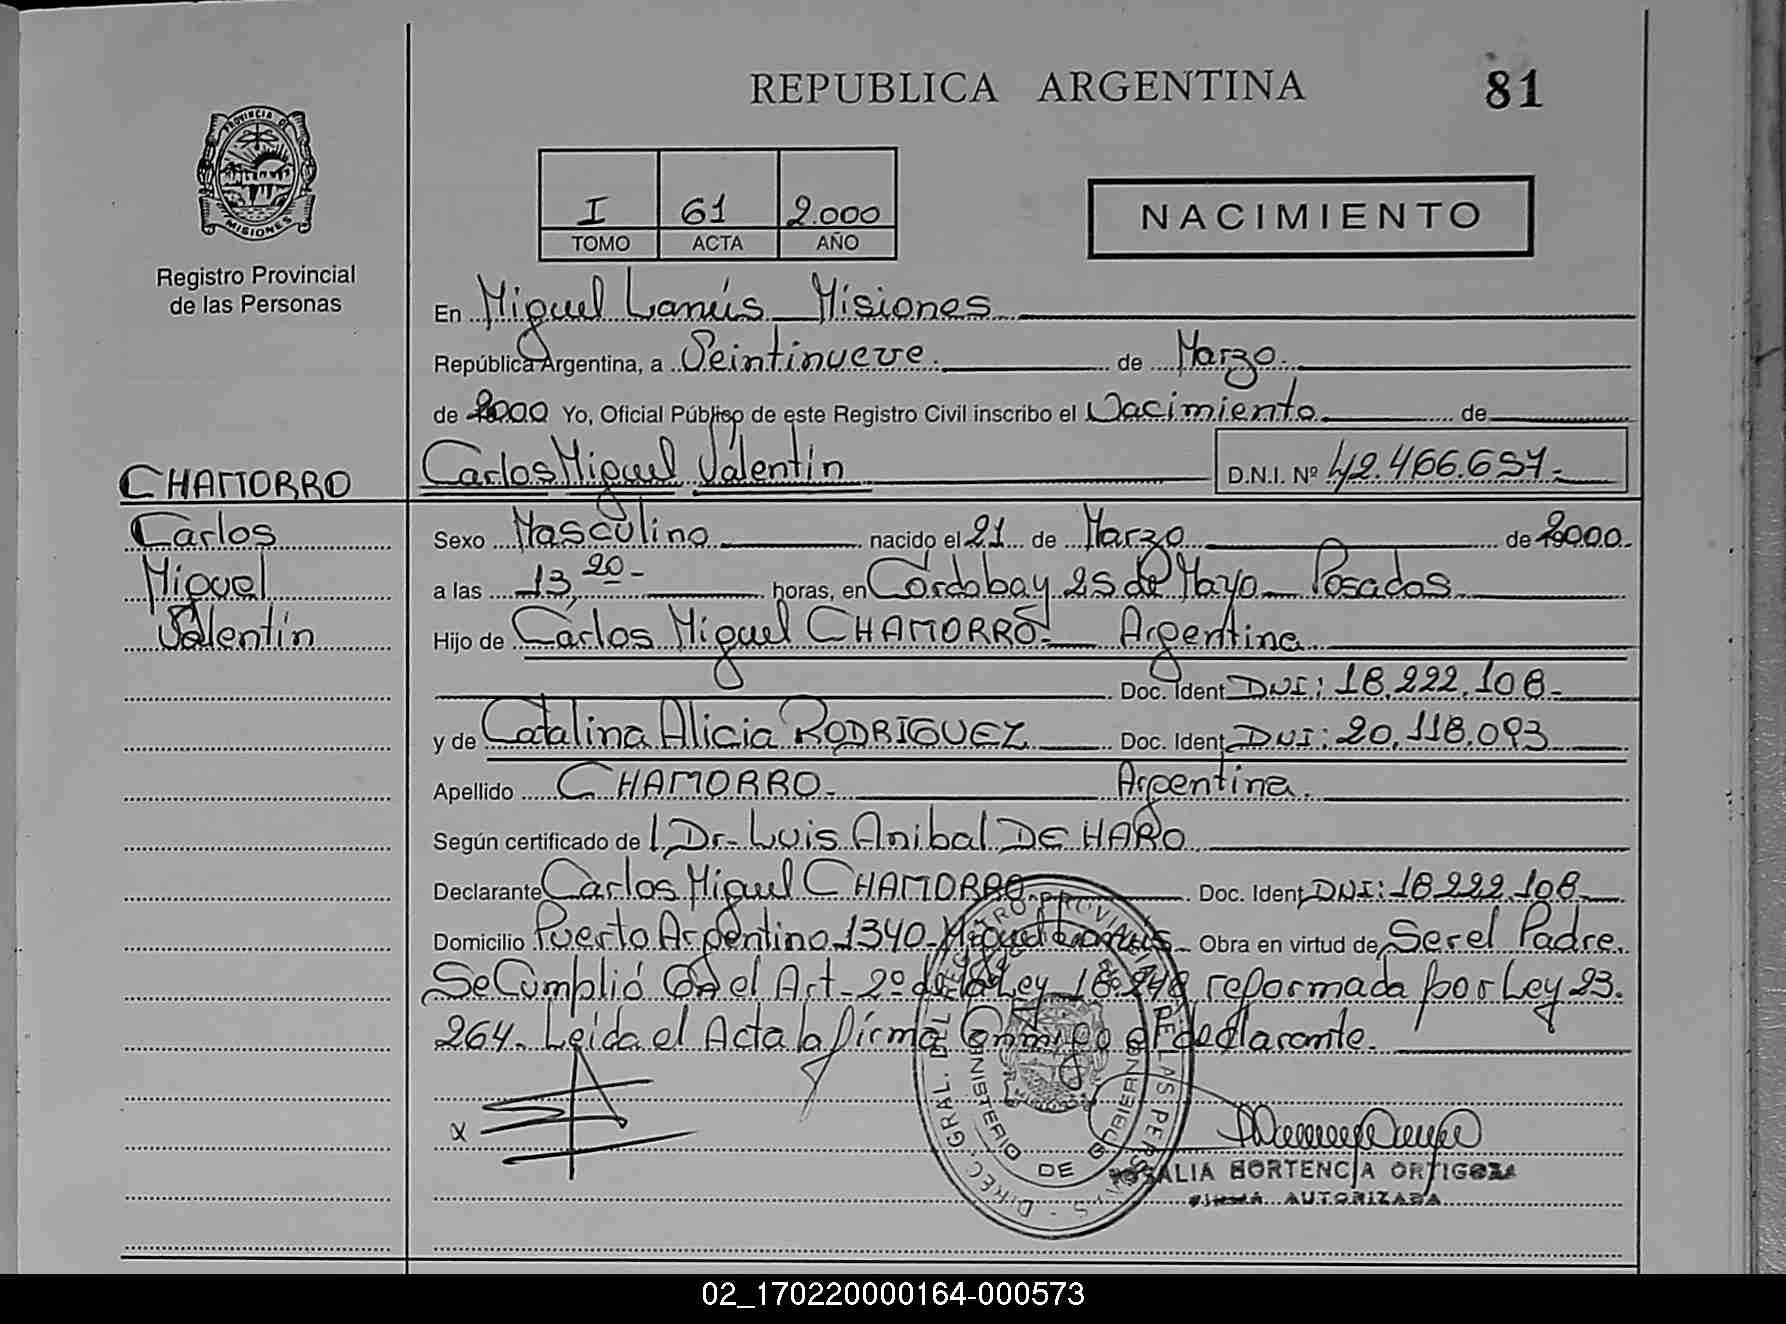 REPUBLICA ARGENTINA
81
PROVINCIA DE
MISIONES
Registro Provincial
de las Personas
I 61 2.000
TOMO ACTA AÑO
NACIMIENTO
En Miguel Lanús Misiones
República Argentina, a Veintinueve. de Marzo.
de 2000 Yo, Oficial Público de este Registro Civil inscribo el Nacimiento de
Carlos Miguel Valentín D.N.I. Nº 42.466.657.-
CHAMORRO
Carlos
Miguel
Valentín
Sexo Masculino nacido el 21 de Marzo de 2000.
a las 13,20- horas, en Córdoba y 25 de Mayo - Posadas
Hijo de Carlos Miguel CHAMORRO- Argentina
Doc. Ident DNI: 18.222.108-
y de Catalina Alicia RODRIGUEZ Doc. Ident. DNI: 20.118.093
Apellido CHAMORRO- Argentina.
Según certificado de l Dr. Luis Anibal DE HARO
Declarante Carlos Miguel CHAMORRO- Doc. Ident DNI: 18.222.108-
Domicilio Puerto Argentino 1340- Miguel Lanús - Obra en virtud de Ser el Padre.
Se Cumplió Con el Art. 2º de la Ley 18.248 reformada por Ley 23.
264. Leída el Acta la firma Conmigo el declarante.
x
ROSALIA HORTENCIA ORTIGOZA
FIRMA AUTORIZADA
DIREC. GRAL. DEL REGISTRO PROVINCIAL DE LAS PERSONAS
MINISTERIO DE GOBIERNO
02_170220000164-000573